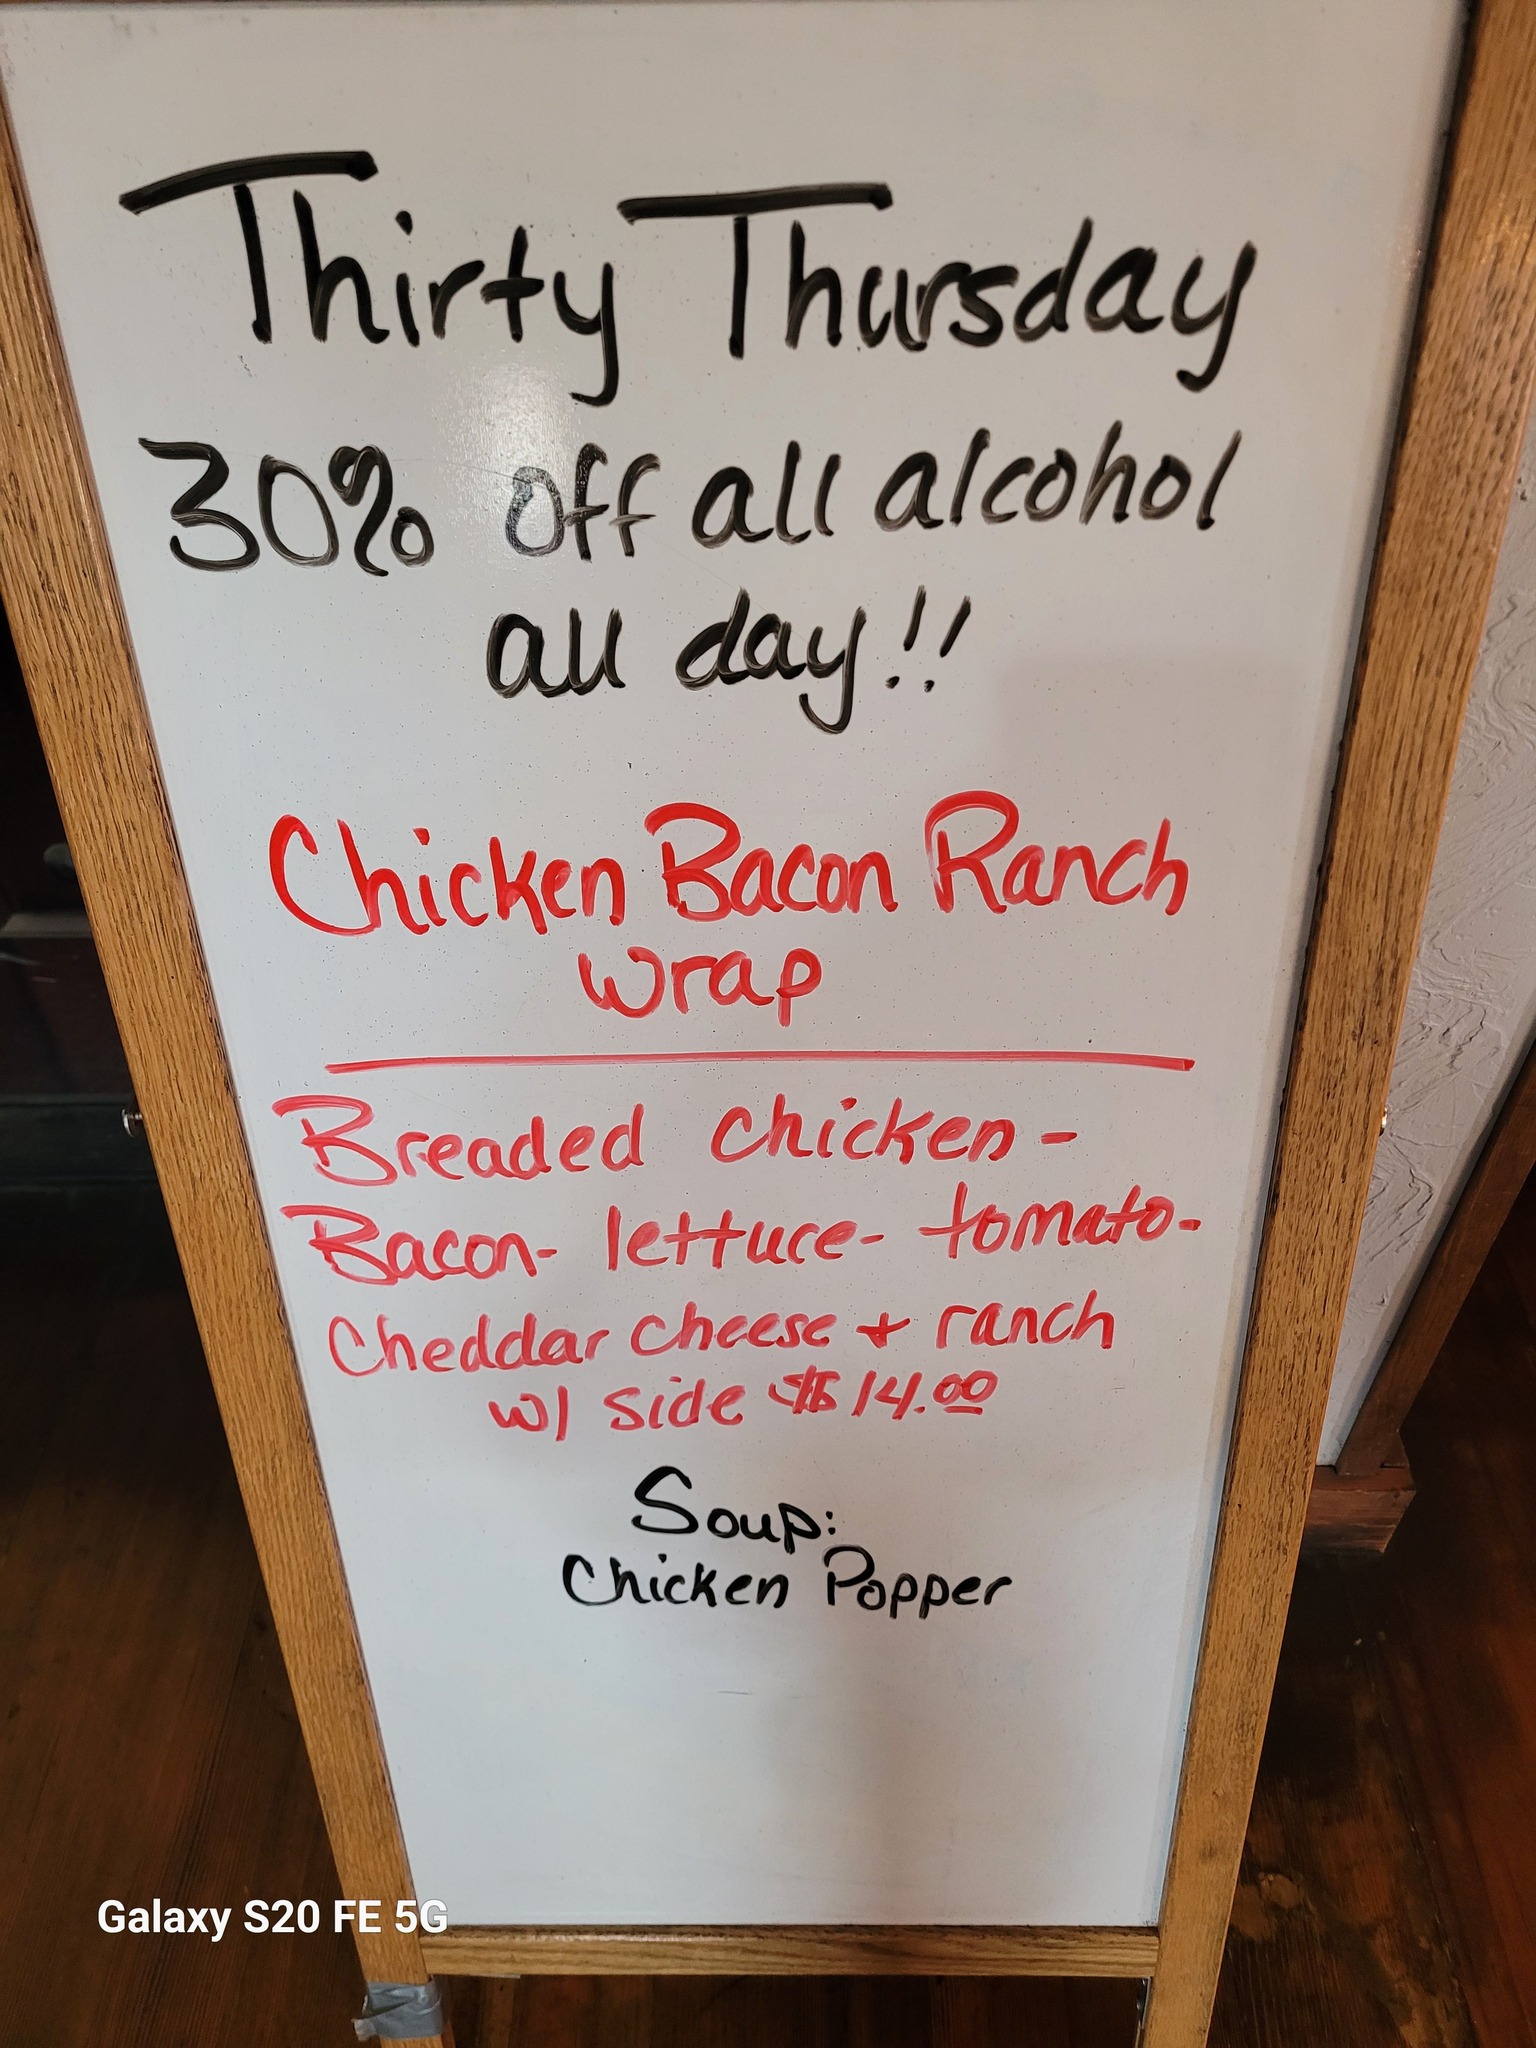 Thirty Thursday
30% off all alcohol
all day!!
Chicken Bacon Ranch
wrap
Breaded chicken -
Bacon- lettuce- tomato-
Cheddar cheese + ranch
w/ side $14.00
Soup:
Chicken Popper
Galaxy S20 FE 5G